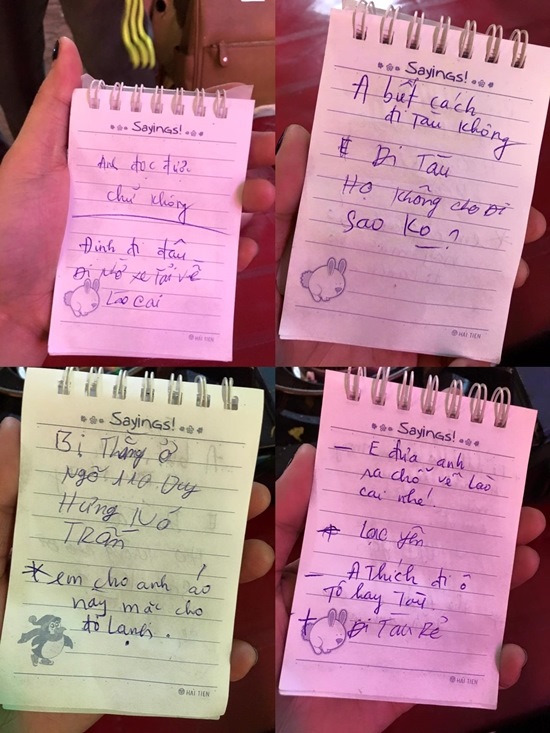 Sayings!
Anh đọc được
chữ không
Định đi đâu
Đi Nhờ xe Tải về
Lào Cai
HẢI TIẾN
Sayings!
A biết cách
đi Tàu không
Đi Tàu
Họ không cho Đi
Sao Ko ?
HẢI TIẾN
Sayings!
Bị Thằng ở
Ngõ 110 Duy
Hưng
Trấn
* em cho anh áo
này mặc cho
đỡ Lạnh.
HẢI TIẾN
Sayings!
- E đưa anh
ra chỗ về Lào
cai nhé!
* Lạc yên
- A Thích đi ô
Tô hay Tàu
+ Đi Tàu Rẻ
HẢI TIẾN